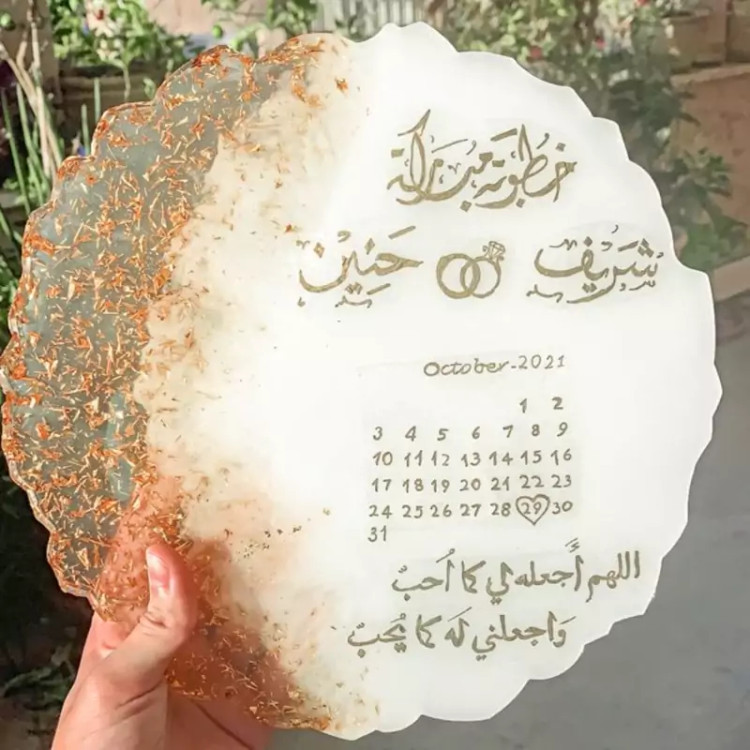 خطوبة مباركة
شريف حنين
October-2021
1 2
3 4 5 6 7 8 9
10 11 12 13 14 15 16
17 18 19 20 21 22 23
24 25 26 27 28 29 30
31
اللهم أجعله لي كما أُحبُ
وَاجعلني لَه كما يُحبّ